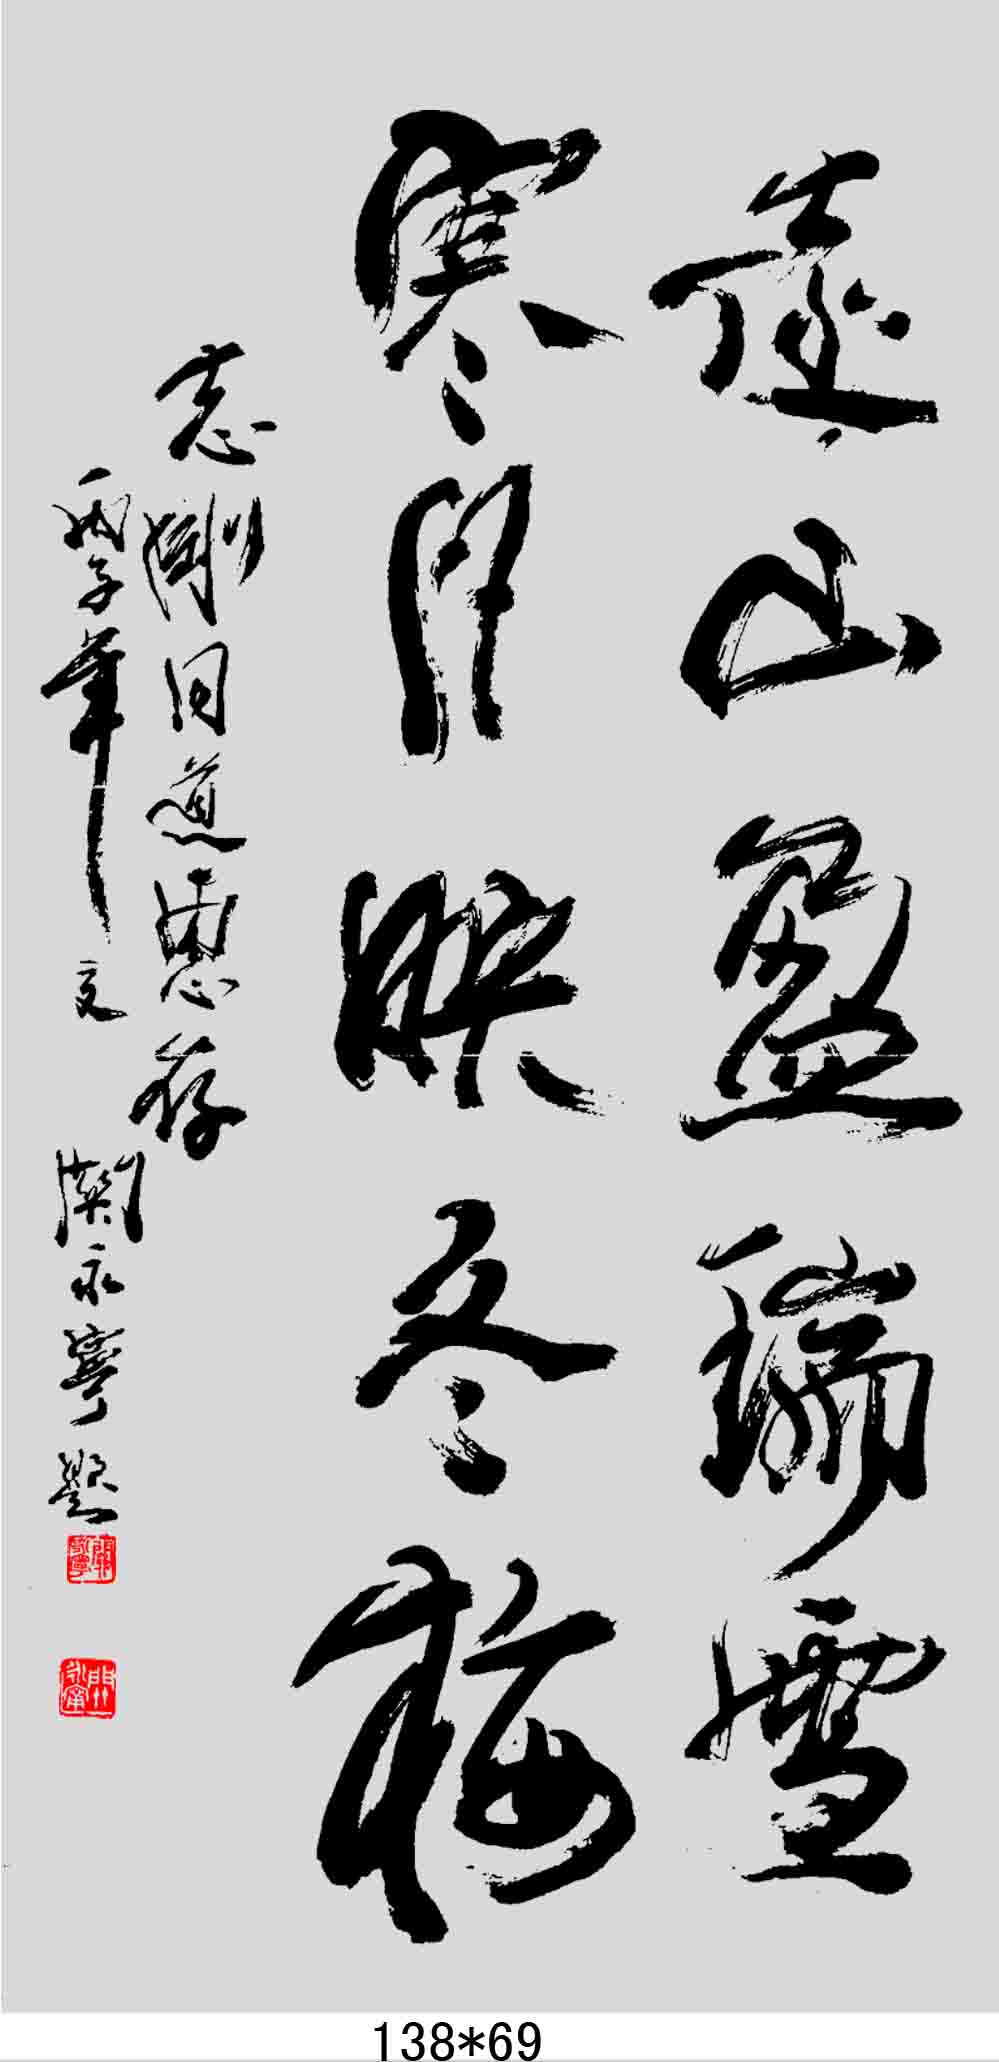 遠山盈瑞雪
寒月映冬梅
志剛同道惠存
丙子年夏
關永寧題
138*69